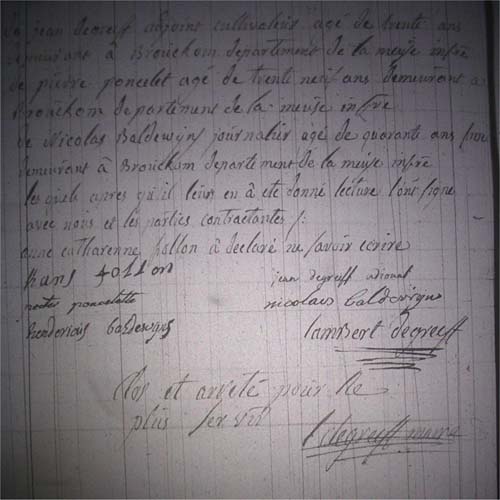 De jean degreef adjoint cultivateur agé de trente ans
demeurant à Brouckom departement de la meuse infre
de pierre poncelet agé de trente neuf ans demeurant a
Brouckom departement de la meuse infre
de Nicolas Baldewijns journalier agé de quarante ans
demeurant à Brouckom departement de la meuse infre
les quels apres qu'il leurs en à ete donné lecture l'ont signe
avec nous et les parties contractantes /:
anne catharenne hollon à declaré ne savoir ecrire
hans
jean degreeff
poncelette
nicolaes baldewijns
henderick baldewijns
lambert degreeff
Clos et arreté pour ne
plus servir
l degreeff maire